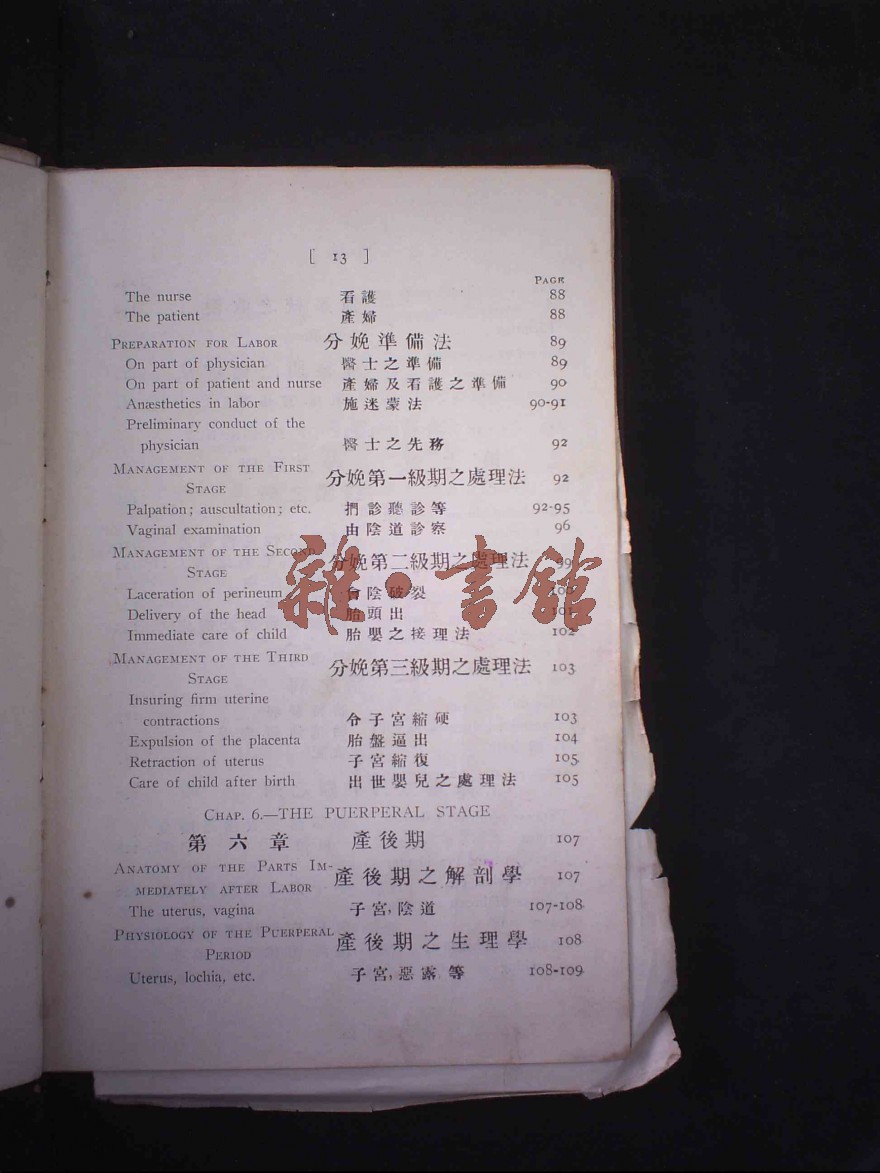 [ 13 ]
PAGE
The nurse 看護 88
The patient 產婦 88
PREPARATION FOR LABOR 分娩準備法 89
On part of physician 醫士之準備 89
On part of patient and nurse 產婦及看護之準備 90
Anæsthetics in labor 施迷蒙法 90-91
Preliminary conduct of the
physician 醫士之先務 92
MANAGEMENT OF THE FIRST
STAGE 分娩第一級期之處理法 92
Palpation; auscultation; etc. 捫診聽診等 92-95
Vaginal examination 由陰道診察 96
MANAGEMENT OF THE SECOND
STAGE 分娩第二級期之處理法 99
Laceration of perineum 陰破裂 100
Delivery of the head 胎頭出 101
Immediate care of child 胎嬰之接理法 102
MANAGEMENT OF THE THIRD
STAGE 分娩第三級期之處理法 103
Insuring firm uterine
contractions 令子宮縮硬 103
Expulsion of the placenta 胎盤逼出 104
Retraction of uterus 子宮縮復 105
Care of child after birth 出世嬰兒之處理法 105
CHAP. 6.—THE PUERPERAL STAGE
第六章 產後期 107
ANATOMY OF THE PARTS IM-
MEDIATELY AFTER LABOR 產後期之解剖學 107
The uterus, vagina 子宮,陰道 107-108
PHYSIOLOGY OF THE PUERPERAL
PERIOD 產後期之生理學 108
Uterus, lochia, etc. 子宮,惡露等 108-109
雜·書館